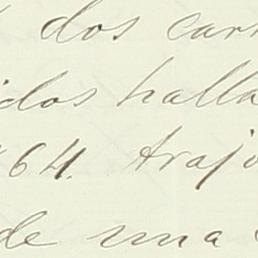 dos carr
idos halla
64. Arajo
de una